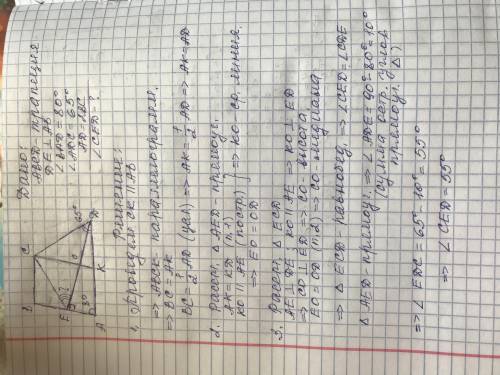 Дано:
ABCD - трапеция
DE ⊥ AB
∠BAD = 80°
∠ADC = 65°
AD = 2BC
∠CED = ?
Решение:
1. Проводим CK ∥ AB
⇒ ABCK - параллелограмм.
⇒ BC = AK
BC = 1/2 AD (усл) ⇒ AK = 1/2 AD ⇒ AK = KD
2. Рассм. △ AED - прямоуг.
AK = KD (п.1)
KO ∥ AE (постр) } ⇒ KO - ср. линия.
⇒ EO = OD
3. Рассм. △ ECD
AE ⊥ DE; KO ∥ AE ⇒ KO ⊥ ED
⇒ CO ⊥ ED ⇒ CO - высота
EO = OD (п.2) ⇒ CO - медиана
⇒ △ ECD - равнобед. ⇒ ∠CED = ∠CDE
△ AED - прямоуг. ⇒ ∠ADE = 90° - 80° = 10°
(сумма остр. углов
прямоуг. △)
⇒ ∠EDC = 65° - 10° = 55°
⇒ ∠CED = 55°
B
C
E
O
65°
D
80°
A
K